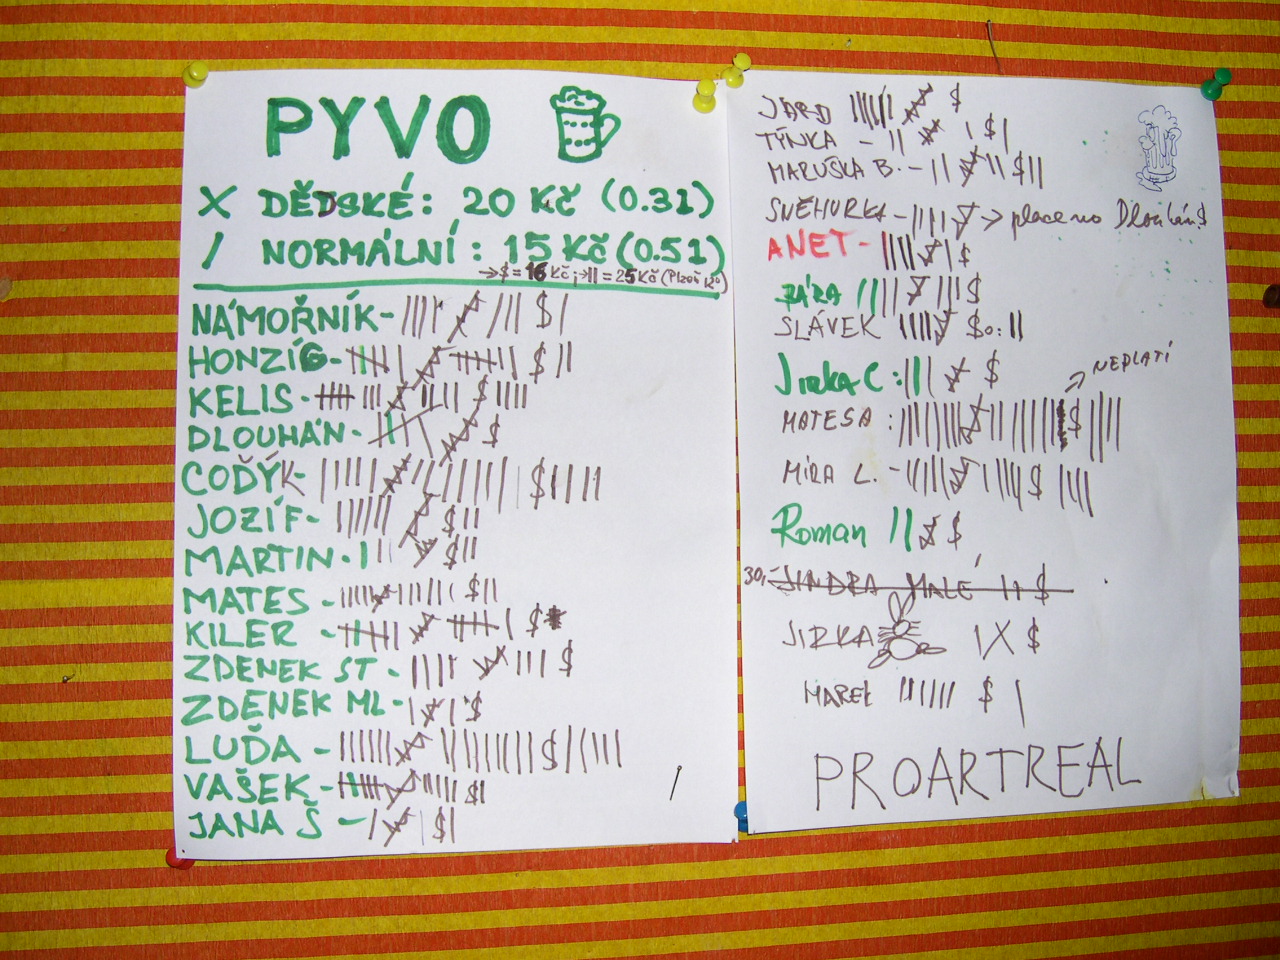 PYVO
X DĚDSKÉ: 20 Kč (0.31)
/ NORMÁLNÍ: 15 Kč (0.51)
→$ = 16 Kč; →|| = 25 Kč (Plzeň 12°)
NÁMOŘNÍK - |||| |||| $ |
HONZÍG - $ ||
KELIS - $ ||||
DLOUHÁN - $
COĎÝK - $ ||||
JOZÍF - $ ||
MARTIN - $ ||
MATES - $ ||
KILER - $
ZDENEK ST - $
ZDENEK ML - $
LUĎA - $ |||||
VAŠEK - $ |
JANA Š - $ |
JARD $
TÝNKA - || | $ |
MARUŠKA B. - || || $ ||
SNEHURKA - |||| → placeno Dlouhán $
ANET - |||| | $
BÁRA |||| ||| $
SLÁVEK |||| $ ||
Jirka C : ||| $
→ NEPLATÍ
MATESA : $ ||||
MÍRA L. - $ ||||
Roman || $
30,- JINDRA MALÉ || $
JIRKA | X $
MAREK $ |
PROARTREAL